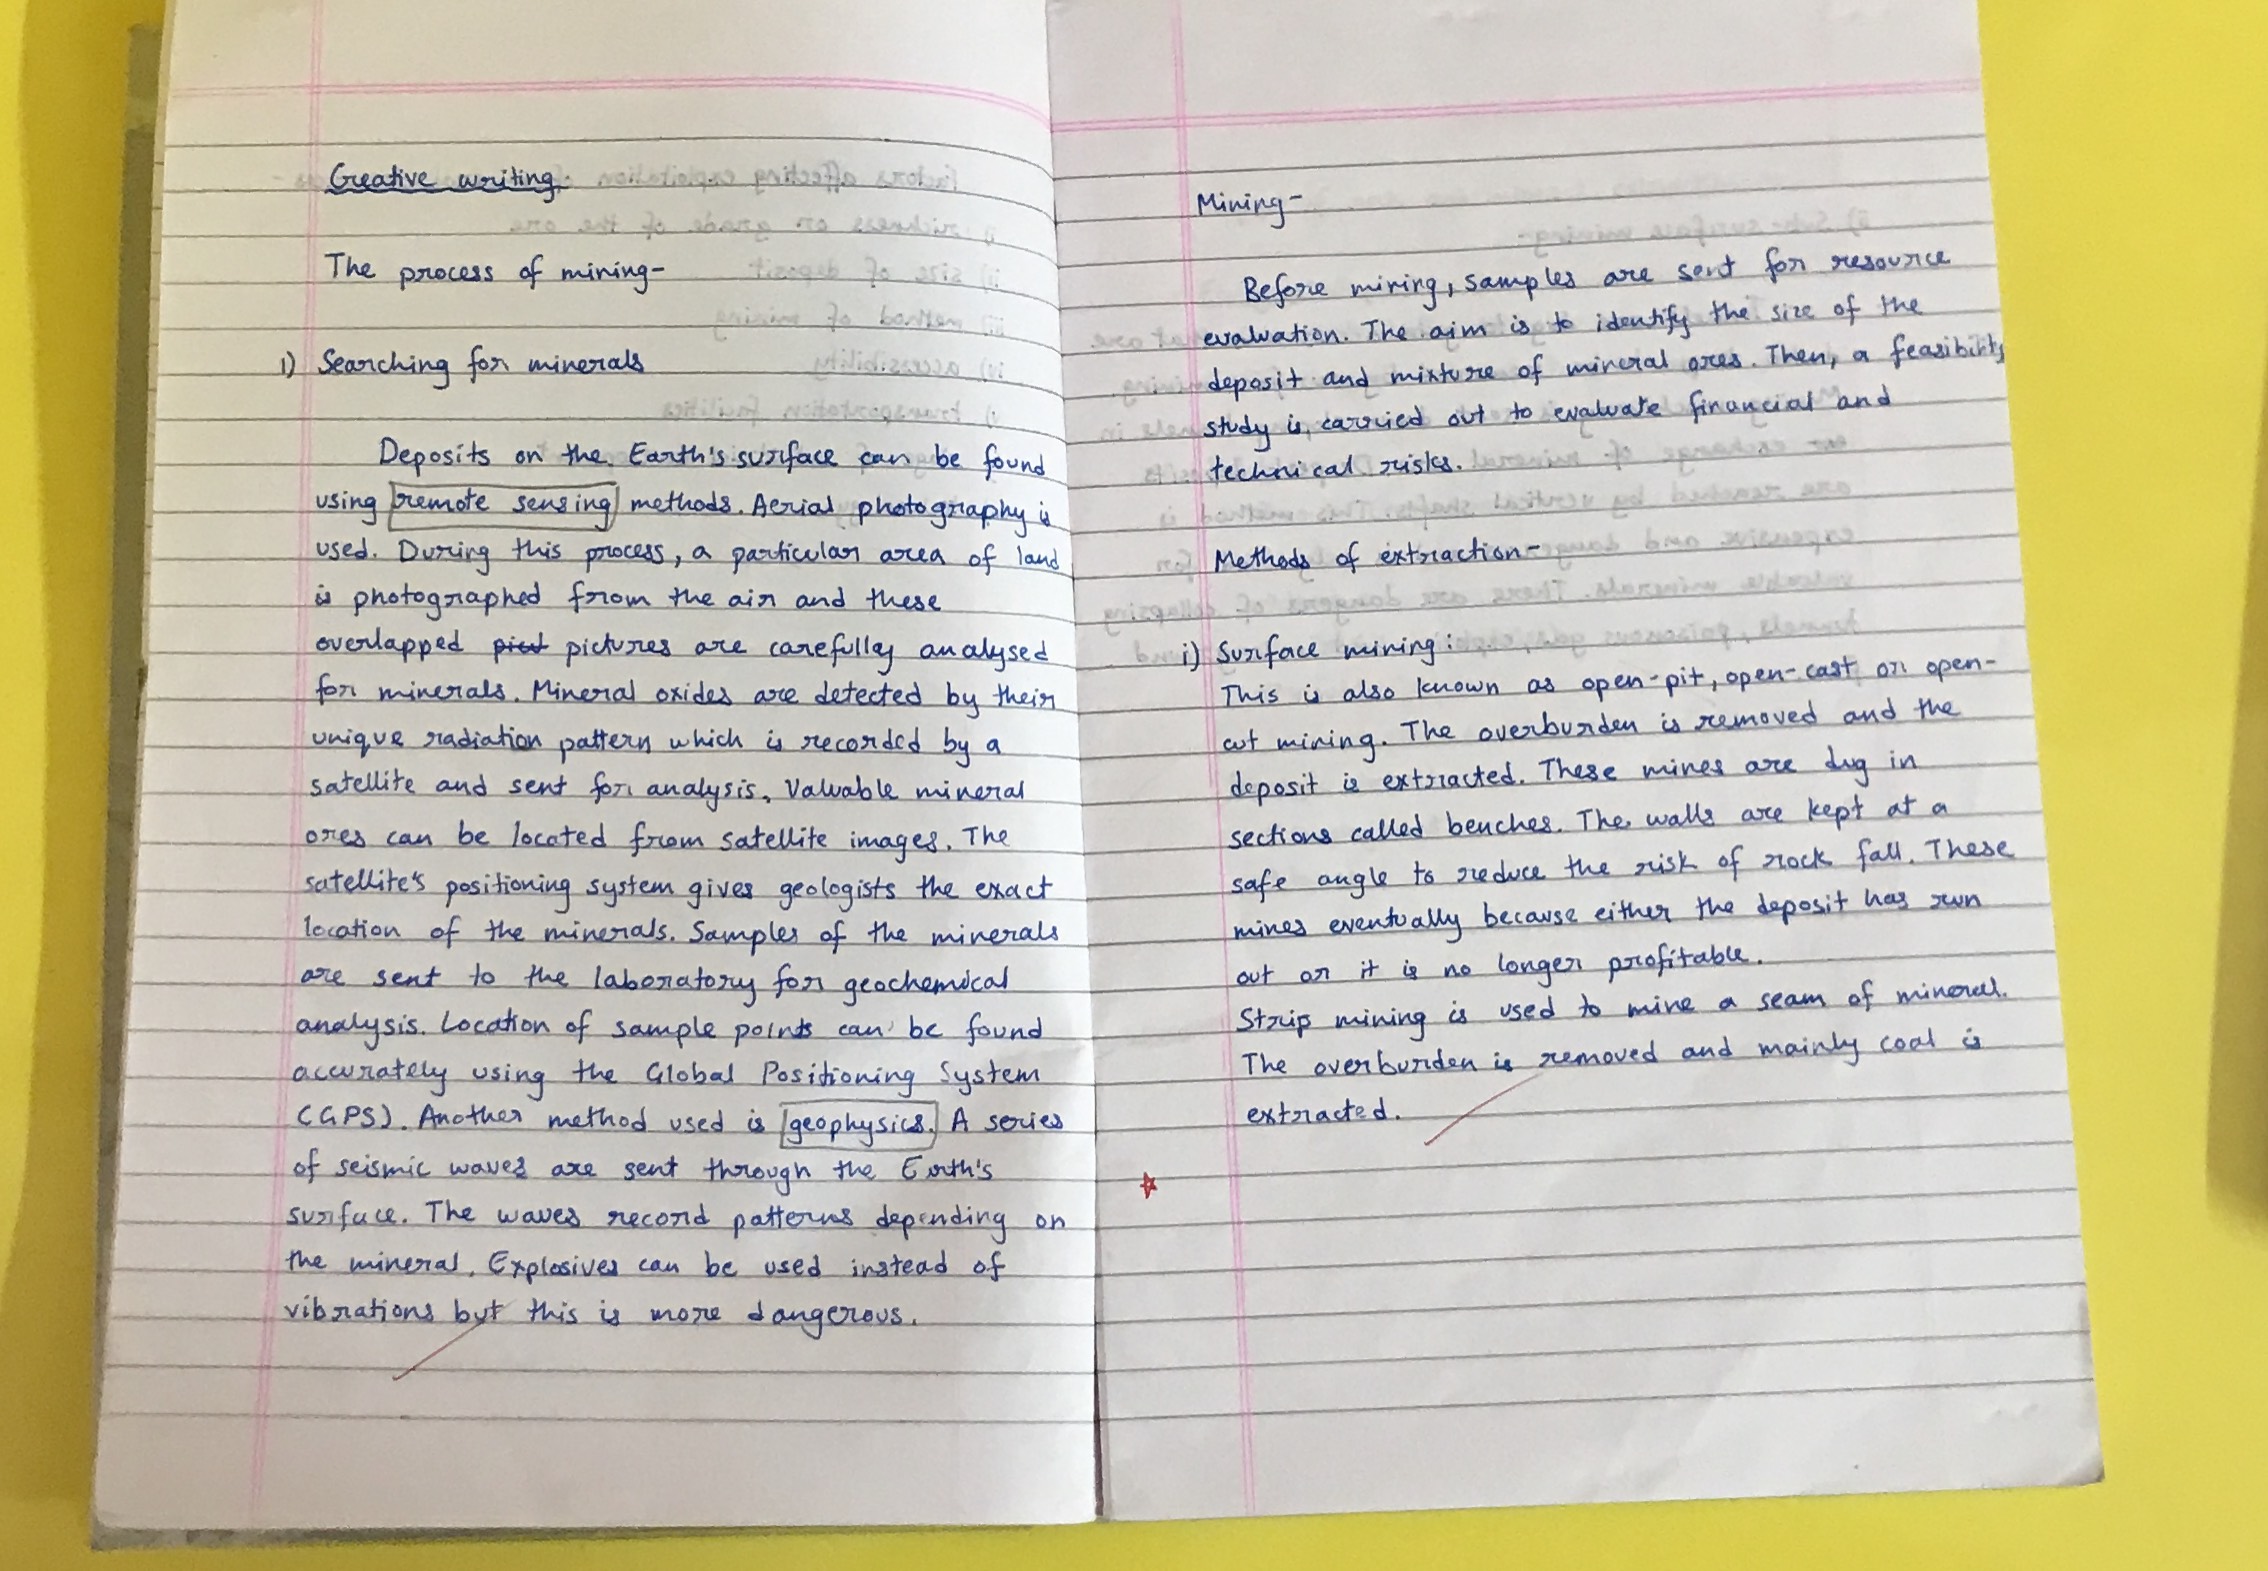 Creative writing.
The process of mining-
1) Searching for minerals
Deposits on the Earth's surface can be found
using remote sensing methods. Aerial photography is
used. During this process, a particular area of land
is photographed from the air and these
overlapped pict pictures are carefully analysed
for minerals. Mineral oxides are detected by their
unique radiation pattern which is recorded by a
satellite and sent for analysis. Valuable mineral
ores can be located from satellite images. The
satellite's positioning system gives geologists the exact
location of the minerals. Samples of the minerals
are sent to the laboratory for geochemical
analysis. Location of sample points can be found
accurately using the Global Positioning System
(GPS). Another method used is geophysics. A series
of seismic waves are sent through the Earth's
surface. The waves record patterns depending on
the mineral. Explosives can be used instead of
vibrations but this is more dangerous.
Mining-
Before mining, samples are sent for resource
evaluation. The aim is to identify the size of the
deposit and mixture of mineral ores. Then, a feasibility
study is carried out to evaluate financial and
technical risks.
Methods of extraction-
i) Surface mining:
This is also known as open-pit, open-cast or open-
cut mining. The overburden is removed and the
deposit is extracted. These mines are dug in
sections called benches. The walls are kept at a
safe angle to reduce the risk of rock fall. These
mines eventually because either the deposit has run
out or it is no longer profitable.
Strip mining is used to mine a seam of mineral.
The overburden is removed and mainly coal is
extracted.